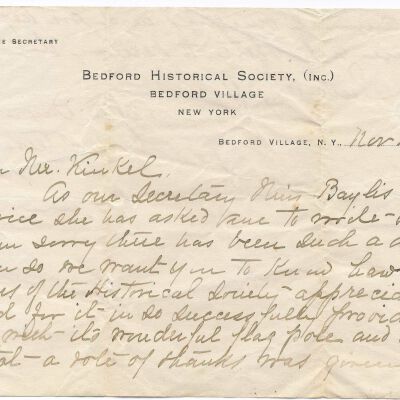 E SECRETARY
BEDFORD HISTORICAL SOCIETY, (INC.)
BEDFORD VILLAGE
NEW YORK
BEDFORD VILLAGE, N. Y., Nov
Mr. Kinkel.
As our Secretary Miss Baylis
she has asked me to write
sorry there has been such a
so we want you to know how
of the Historical Society apprecia
for it in so successfully provid
with its wonderful flag pole and
a vote of thanks was given